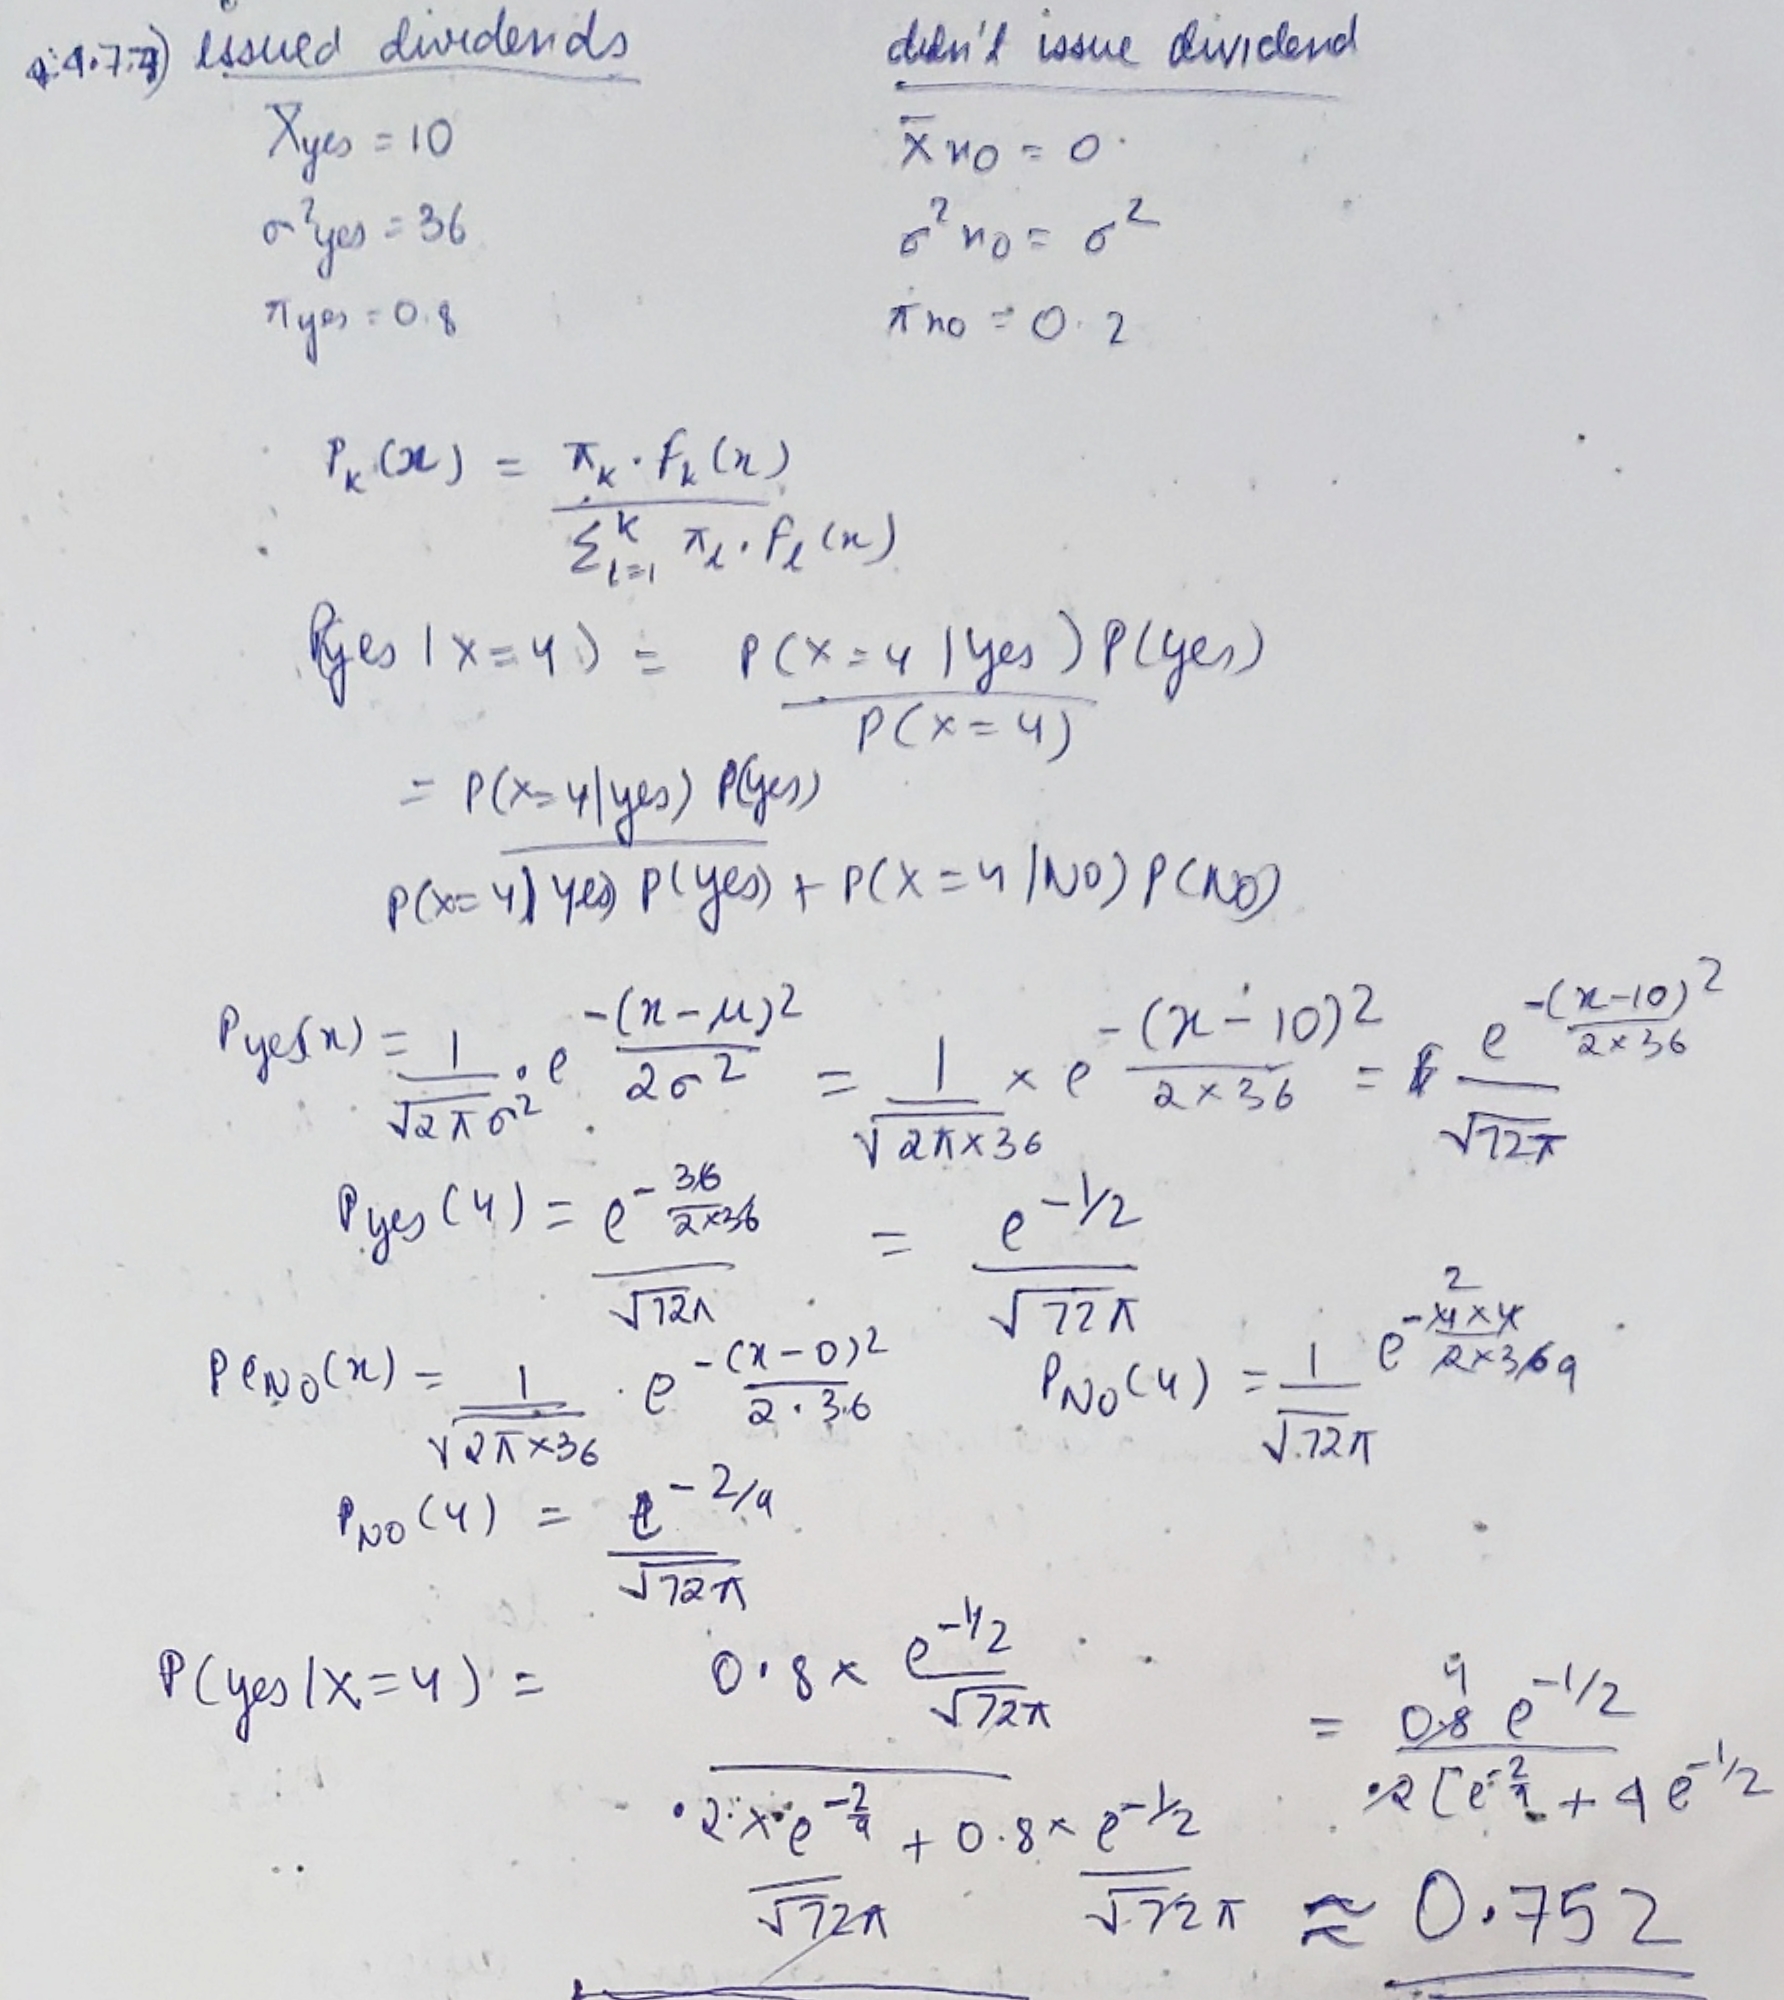 4.7.7) issued dividends    didn't issue dividend
X̄yes = 10    x̄ no = 0
σ²yes = 36    σ² no = σ²
πyes = 0.8    π no = 0.2
P_k(x) = π_k · f_k(x) / Σ^K_{l=1} π_l · f_l(x)
P(yes | x=4) = P(x=4 | yes) P(yes) / P(x=4)
= P(x=4|yes) P(yes) / P(x=4|yes) P(yes) + P(x=4|NO) P(NO)
Pyes(x) = 1/√2πσ² · e^{-(x-μ)²/2σ²} = 1/√2π×36 × e^{-(x-10)²/2×36} = e^{-(x-10)²/2×36} / √72π
Pyes(4) = e^{-36/2×36} / √72π = e^{-1/2} / √72π
P_NO(x) = 1/√2π×36 · e^{-(x-0)²/2·36}    P_NO(4) = 1/√72π e^{-4×4/2×36} 2 9
P_NO(4) = e^{-2/9} / √72π
P(yes|x=4) = 0.8 × e^{-1/2}/√72π / .2 × e^{-2/9}/√72π + 0.8 × e^{-1/2}/√72π = 0.8 4 e^{-1/2} / .2 [e^{-2/9} + 4 e^{-1/2}
≈ 0.752